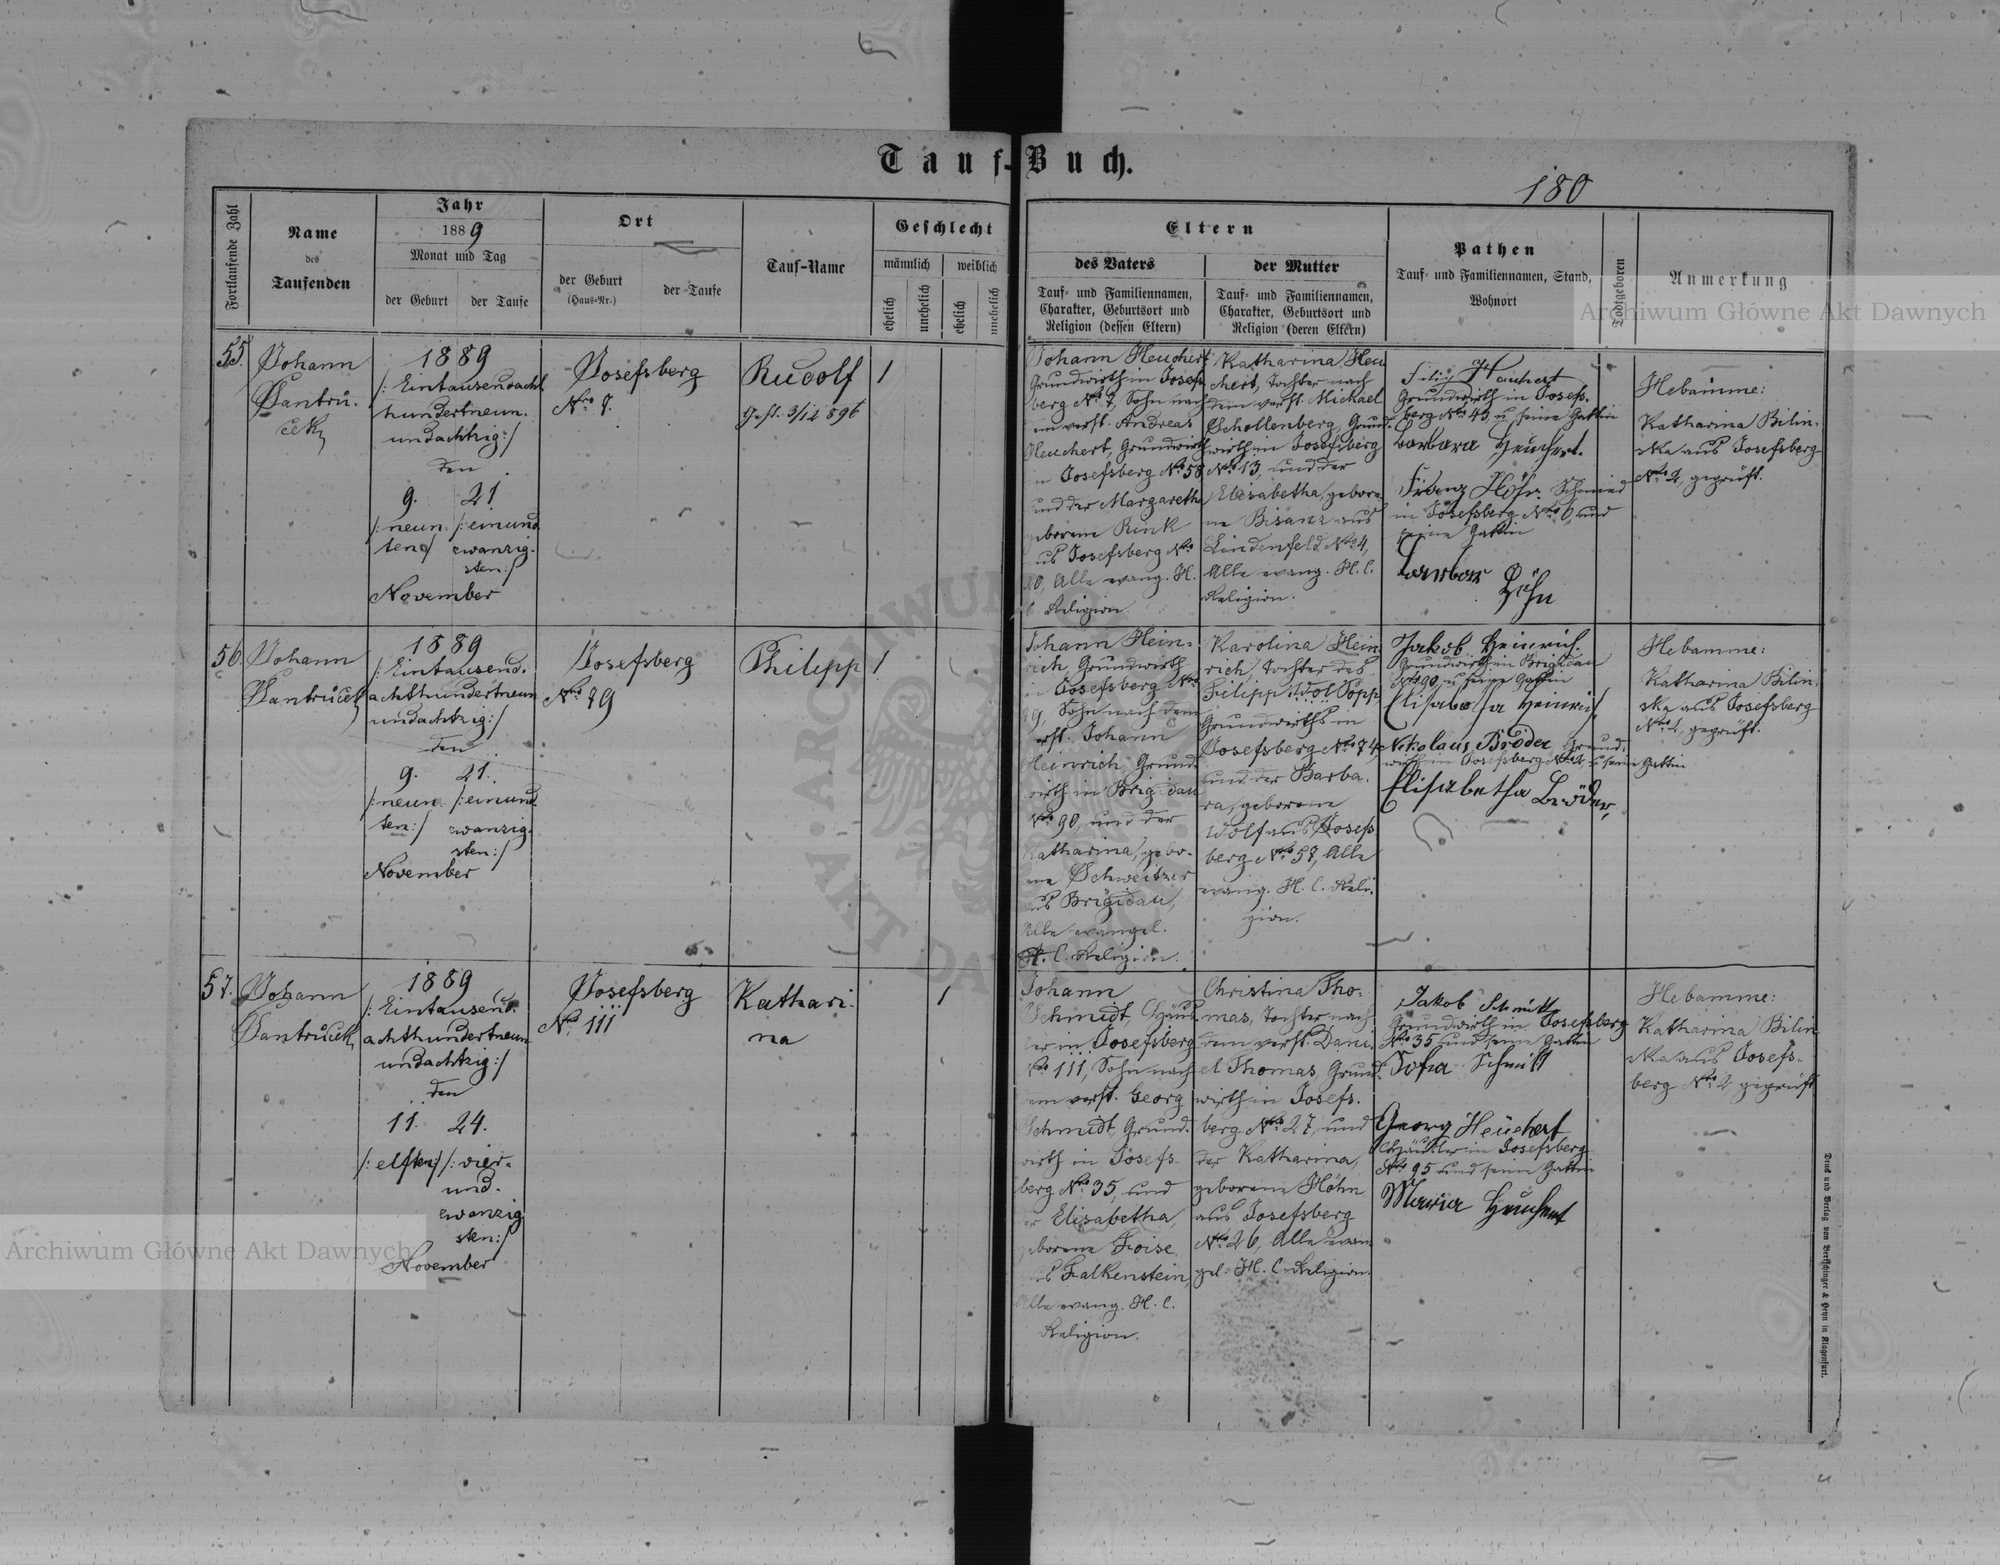 Tauf-Buch.
180
Fortlaufende Zahl
Name
des
Taufenden
Jahr
1889
Monat und Tag
der Geburt
der Taufe
Ort
der Geburt
(Haus-Nr.)
der Taufe
Tauf-Name
Geschlecht
männlich
weiblich
ehelich
unehelich
ehelich
unehelich
Eltern
des Vaters
Tauf- und Familiennamen,
Charakter, Geburtsort und
Religion (dessen Eltern)
der Mutter
Tauf- und Familiennamen,
Charakter, Geburtsort und
Religion (deren Eltern)
Pathen
Tauf- und Familiennamen, Stand,
Wohnort
Todtgeboren
Anmerkung
55.
Johann
Santru-
ček
1889
/: Eintausendacht
hundertneun-
undachtzig :/
den
9. 21
/: neun- /: einund
ten :/ zwanzig-
sten :/
November
Josefsberg
Nro 7.
Rudolf
Gest. 3/12 896
1
Johann Heuchert
Grundwirth in Josefs
berg No 7, Sohn nach
verst. Andreas
Heuchert, Grundwirth
in Josefsberg No 58
und der Margaretha
geborene Rink
aus Josefsberg Nro
Alle evang. H.
C. Religion.
Katharina Heu
chert, Tochter nach
dem verst. Michael
Schollenberg, Grund-
wirth in Josefsberg
No 13, und der
Elisabetha, gebore-
ne Bisanz aus
Lindenfeld Nro 4,
Alle evang. H. C.
Religion.
Filip Heuchert
Grundwirth in Josefs-
berg No 43 u. seine Gattin
Barbara Heuchert.
Franz Höhn Schmied
in Josefsberg No 6 und
seine Gattin
Barbara
Höhn
Hebamme:
Katharina Bilin-
ska aus Josefsberg
Nro 2, geprüft.
56.
Johann
Santruček
1889
/: Eintausend-
achthundertneun
undachtzig :/
den
9. 21.
/: neun- /: einund
ten :/ zwanzig-
sten :/
November
Josefsberg
Nro 79
Philipp
1
Johann Hein-
rich, Grundwirth
in Josefsberg Nro
79, Sohn nach dem
verst. Johann
Heinrich, Grund
wirth in Brigidau
Nro 90, und der
Katharina, gebo-
rene Schweitzer
aus Brigidau,
Alle evangel.
H. C. Religion.
Karolina Hein
rich, Tochter des
Filipp Popp,
Grundwirths in
Josefsberg No 74,
und der Barba-
ra, geborene
Wolf aus Josefs
berg No 57, Alle
evang. H. C. Reli-
gion.
Jakob Heinrich.
Grundwirth in Brigidau
Nro 90 u. seine Gattin
Elisabetha Heinrich,
Nikolaus Bröder, Grund-
wirth in Josefsberg No 2 u. seine Gattin
Elisabetha Bröder,
Hebamme:
Katharina Bilin
ska aus Josefsberg
geprüft.
57.
Johann
Santruček
1889
/: Eintausend-
achthundertneun
undachtzig :/
den
11. 24.
/: elften :/ /: vier-
und-
zwanzig
sten :/
November
Josefsberg
Nro 111
Kathari-
na
1
Johann
Schmidt, Häus-
ler in Josefsberg
No 111, Sohn nach
dem verst. Georg
Schmidt, Grund-
wirth in Josefs-
berg No 35, und
der Elisabetha,
geborene
aus Falkenstein,
Alle evang. H. C.
Religion.
Christina Tho-
mas, Tochter nach
dem verst. Dani-
el Thomas, Grund-
wirth in Josefs-
berg No 27, und
der Katharina,
geborene Höhn
aus Josefsberg
No 26, Alle evan-
gel. H. C. Religion.
Jakob Schmitt
Grundwirth in Josefsberg
No 35 und seine Gattin
Sofia Schmitt
Georg Heüchert
Häusler in Josefsberg
No 95 und seine Gattin
Maria Heuchert
Hebamme:
Katharina Bilin
ska aus Josefs-
berg Nro 2 geprüft
Druck und Verlag von Bertschinger & Heyn in Klagenfurt.
Archiwum Główne Akt Dawnych
Archiwum Główne Akt Dawnych